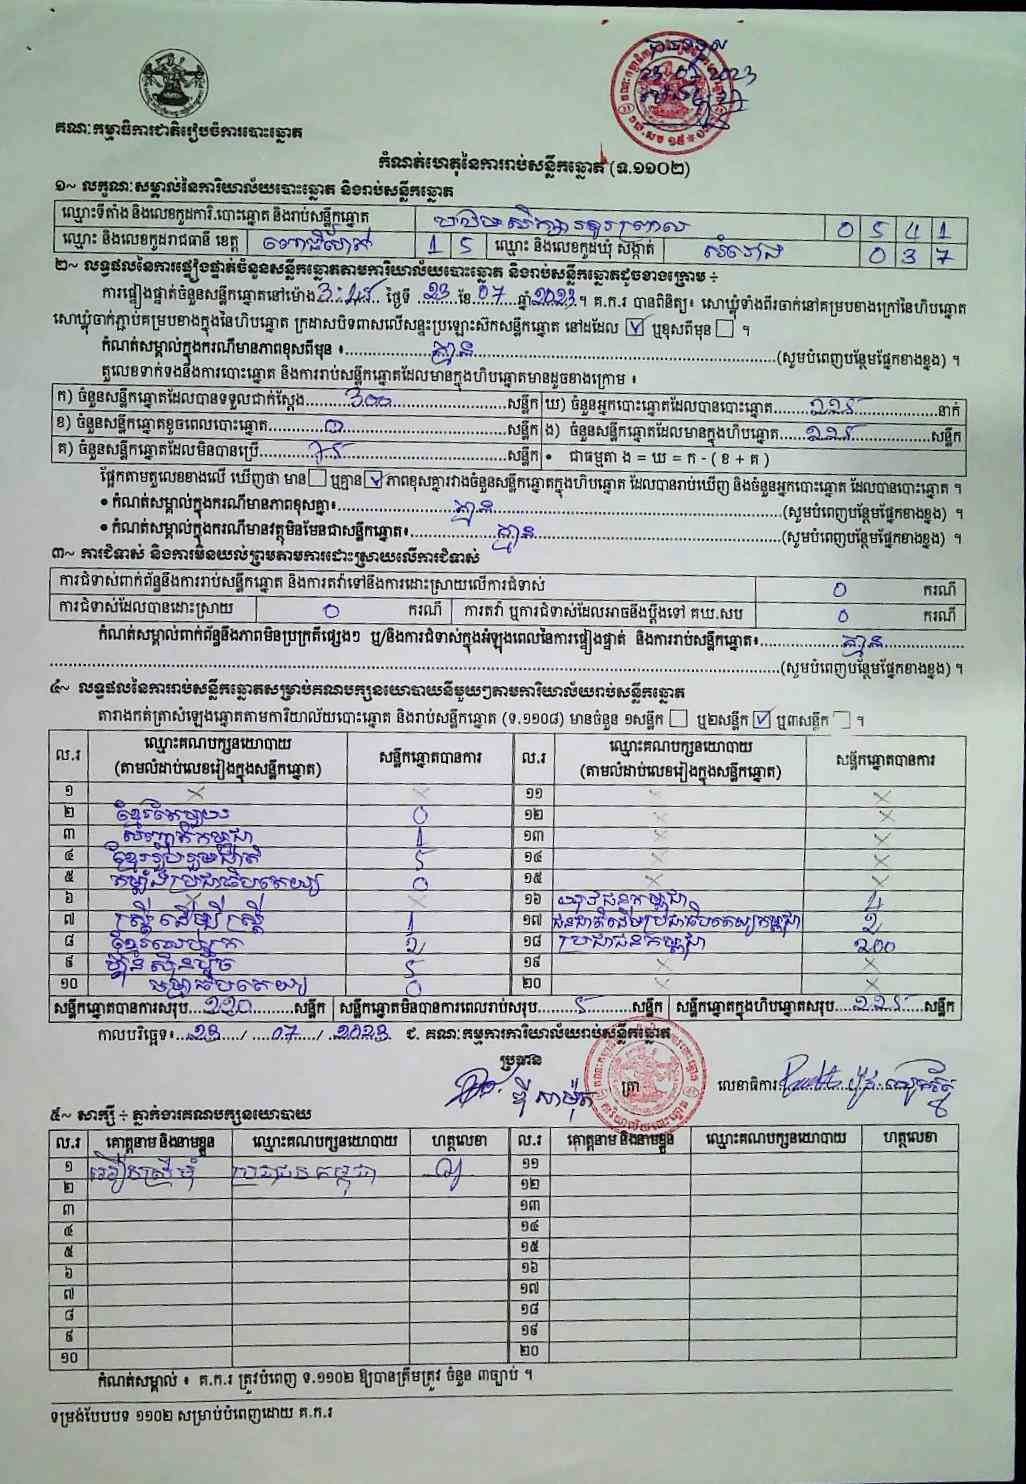 គណៈកម្មាធិការជាតិរៀបចំការបោះឆ្នោត
23-07-2023
កំណត់ហេតុនៃការរាប់សន្លឹកឆ្នោត (ទ.១១០២)
១~ លក្ខណៈសម្គាល់នៃការិយាល័យបោះឆ្នោត និងរាប់សន្លឹកឆ្នោត
ឈ្មោះទីតាំង និងលេខកូដការិ.បោះឆ្នោត និងរាប់សន្លឹកឆ្នោត 0 5 4 1
ឈ្មោះ និងលេខកូដរាជធានី ខេត្ត ពោធិ៍សាត់ 1 5 ឈ្មោះ និងលេខកូដឃុំ សង្កាត់ 0 3 7
២~ លទ្ធផលនៃការផ្ទៀងផ្ទាត់ចំនួនសន្លឹកឆ្នោតតាមការិយាល័យបោះឆ្នោត និងរាប់សន្លឹកឆ្នោតដូចខាងក្រោម ÷
ការផ្ទៀងផ្ទាត់ចំនួនសន្លឹកឆ្នោតនៅម៉ោង 3:45 ថ្ងៃទី 23 ខែ 07 ឆ្នាំ 2023 ។ គ.ក.រ បានពិនិត្យ៖ សោឃ្លុំទាំងពីរចាក់នៅគម្របខាងក្រៅនៃហិបឆ្នោត
សោឃ្លុំចាក់ភ្ជាប់គម្របខាងក្នុងនៃហិបឆ្នោត ក្រដាសបិទពាសលើសន្ទះប្រឡោះស៊កសន្លឹកឆ្នោត នៅដដែល ✓ ឬខុសពីមុន ។
កំណត់សម្គាល់ក្នុងករណីមានភាពខុសពីមុន ៖ គ្មាន (សូមបំពេញបន្ថែមផ្នែកខាងខ្នង) ។
តួលេខទាក់ទងនឹងការបោះឆ្នោត និងការរាប់សន្លឹកឆ្នោតដែលមានក្នុងហិបឆ្នោតមានដូចខាងក្រោម ៖
ក) ចំនួនសន្លឹកឆ្នោតដែលបានទទួលជាក់ស្តែង 300 សន្លឹក ឃ) ចំនួនអ្នកបោះឆ្នោតដែលបានបោះឆ្នោត 225 នាក់
ខ) ចំនួនសន្លឹកឆ្នោតខូចពេលបោះឆ្នោត 0 សន្លឹក ង) ចំនួនសន្លឹកឆ្នោតដែលមានក្នុងហិបឆ្នោត 225 សន្លឹក
គ) ចំនួនសន្លឹកឆ្នោតដែលមិនបានប្រើ 75 សន្លឹក • ជាធម្មតា ង = ឃ = ក - ( ខ + គ )
ផ្អែកតាមតួលេខខាងលើ ឃើញថា មាន ឬគ្មាន ✓ ភាពខុសគ្នារវាងចំនួនសន្លឹកឆ្នោតក្នុងហិបឆ្នោត ដែលបានរាប់ឃើញ និងចំនួនអ្នកបោះឆ្នោត ដែលបានបោះឆ្នោត ។
• កំណត់សម្គាល់ក្នុងករណីមានភាពខុសគ្នា៖ គ្មាន (សូមបំពេញបន្ថែមផ្នែកខាងខ្នង) ។
• កំណត់សម្គាល់ក្នុងករណីមានវត្ថុមិនមែនជាសន្លឹកឆ្នោត៖ គ្មាន (សូមបំពេញបន្ថែមផ្នែកខាងខ្នង) ។
៣~ ការជំទាស់ និងការមិនយល់ព្រមតាមការដោះស្រាយលើការជំទាស់
ការជំទាស់ពាក់ព័ន្ធនឹងការរាប់សន្លឹកឆ្នោត និងការតវ៉ាទៅនឹងការដោះស្រាយលើការជំទាស់ 0 ករណី
ការជំទាស់ដែលបានដោះស្រាយ 0 ករណី ការតវ៉ា ឬការជំទាស់ដែលអាចនឹងប្តឹងទៅ គឃ.សប 0 ករណី
កំណត់សម្គាល់ពាក់ព័ន្ធនឹងភាពមិនប្រក្រតីផ្សេងៗ ឬ/និងការជំទាស់ក្នុងអំឡុងពេលនៃការផ្ទៀងផ្ទាត់ និងការរាប់សន្លឹកឆ្នោត៖ គ្មាន
(សូមបំពេញបន្ថែមផ្នែកខាងខ្នង) ។
៤~ លទ្ធផលនៃការរាប់សន្លឹកឆ្នោតសម្រាប់គណបក្សនយោបាយនីមួយៗតាមការិយាល័យរាប់សន្លឹកឆ្នោត
តារាងកត់ត្រាសំឡេងឆ្នោតតាមការិយាល័យបោះឆ្នោត និងរាប់សន្លឹកឆ្នោត (ទ.១១០៨) មានចំនួន ១សន្លឹក ឬ២សន្លឹក ✓ ឬ៣សន្លឹក ។
ល.រ ឈ្មោះគណបក្សនយោបាយ (តាមលំដាប់លេខរៀងក្នុងសន្លឹកឆ្នោត) សន្លឹកឆ្នោតបានការ ល.រ ឈ្មោះគណបក្សនយោបាយ (តាមលំដាប់លេខរៀងក្នុងសន្លឹកឆ្នោត) សន្លឹកឆ្នោតបានការ
១ × × ១១ × ×
២ 0 ១២ × ×
៣ 1 ១៣ × ×
៤ ខ្មែររួបរួមជាតិ 5 ១៤ × ×
៥ កម្លាំងប្រជាធិបតេយ្យ 0 ១៥ × ×
៦ × × ១៦ យុវជនកម្ពុជា 4
៧ ស្ត្រីដើម្បីស្ត្រី 1 ១៧ ជនជាតិដើមប្រជាធិបតេយ្យកម្ពុជា 2
៨ 2 ១៨ ប្រជាជនកម្ពុជា 200
៩ ហ្វ៊ុនស៊ិនប៉ិច 5 ១៩ × ×
១០ 0 ២០ × ×
សន្លឹកឆ្នោតបានការសរុប 220 សន្លឹក សន្លឹកឆ្នោតមិនបានការពេលរាប់សរុប 5 សន្លឹក សន្លឹកឆ្នោតក្នុងហិបឆ្នោតសរុប 225 សន្លឹក
កាលបរិច្ឆេទ៖ 23 / 07 / 2023 ជ. គណៈកម្មការការិយាល័យរាប់សន្លឹកឆ្នោត
ប្រធាន ត្រា លេខាធិការ
៥~ សាក្សី ÷ ភ្នាក់ងារគណបក្សនយោបាយ
ល.រ គោត្តនាម និងនាមខ្លួន ឈ្មោះគណបក្សនយោបាយ ហត្ថលេខា ល.រ គោត្តនាម និងនាមខ្លួន ឈ្មោះគណបក្សនយោបាយ ហត្ថលេខា
១ ប្រជាជនកម្ពុជា ១១
២ ១២
៣ ១៣
៤ ១៤
៥ ១៥
៦ ១៦
៧ ១៧
៨ ១៨
៩ ១៩
១០ ២០
កំណត់សម្គាល់ ៖ គ.ក.រ ត្រូវបំពេញ ទ.១១០២ ឱ្យបានត្រឹមត្រូវ ចំនួន ៣ច្បាប់ ។
ទម្រង់បែបបទ ១១០២ សម្រាប់បំពេញដោយ គ.ក.រ